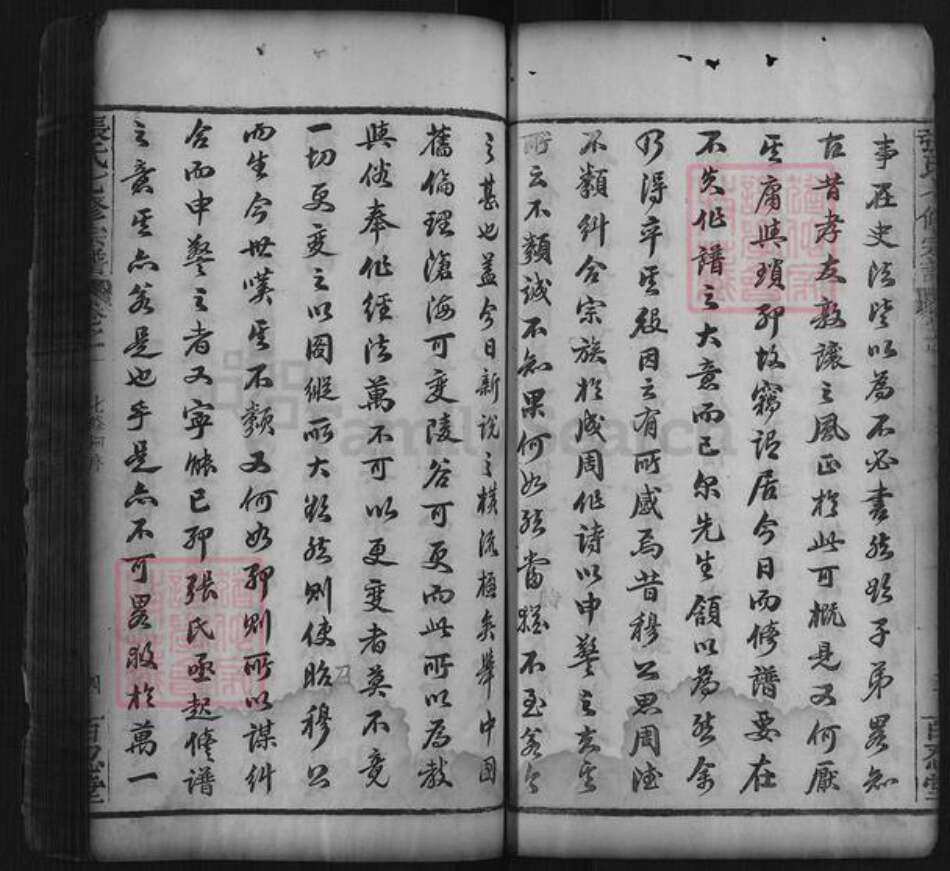 事在史法皆以為不必書然欲子弟畧知
古昔孝友敦讓之風正於此可概見又何厭
其庸與瑣耶故竊謂居今日而脩譜要在
不失作譜之大意而已爾先生領以為然余
乃得卒其役因之有所感焉昔穆公思周德
不類糾合宗族於成周作詩以申警之玄其
所云不類誠不知果何如然當猶不至若今
之甚也蓋今日新說之橫流極矣舉中國
舊倫理滄海可變陵谷可更而此所以為教
與俗奉作經法萬不可以更變者莫不竟
一切更變之以圖縱所大欲然則使昭穆公
而生今世嘆其不類又何如耶則所以謀糾
合而申警之者又寧能已耶張氏亟起修譜
之意其亦若是也乎是亦不可畧敢於萬一
張氏七修宗譜
百忍堂
FamilySearch